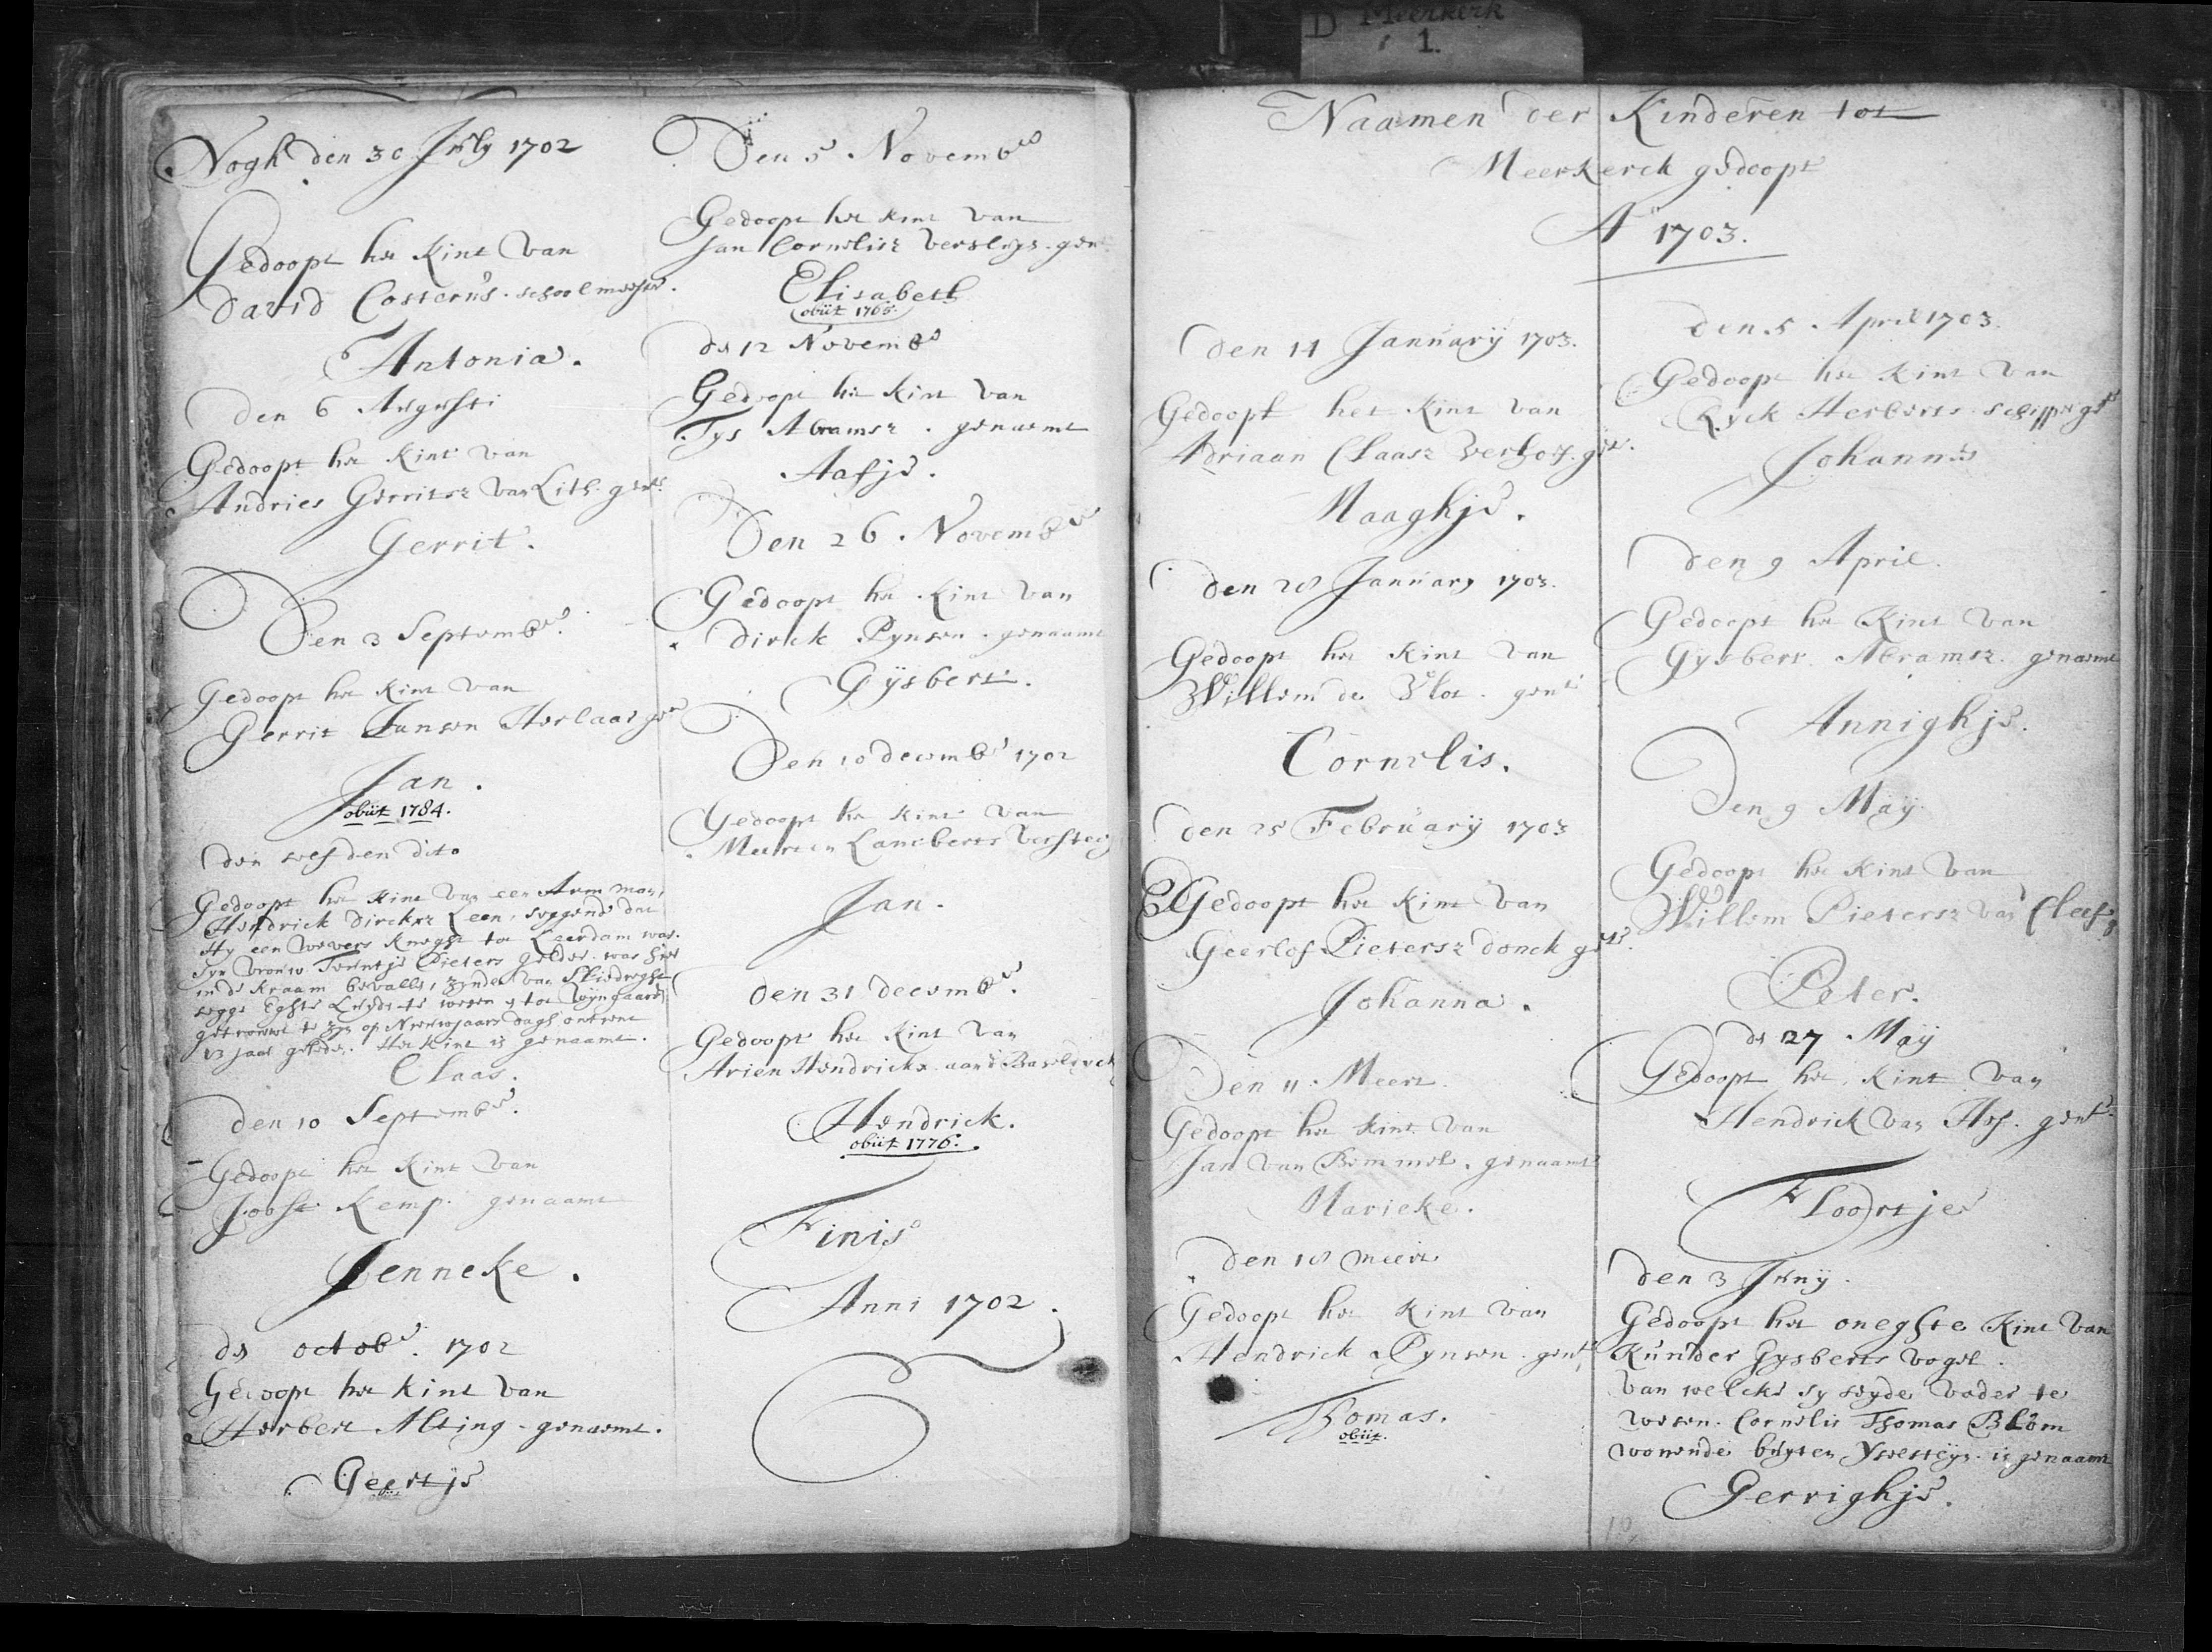 D Meerkerk
1.
Nogh den 30 July 1702
Gedoopt het Kint van
David Costerus. schoolmeester.
Antonia.
Den 6 Augusti
Gedoopt het Kint van
Andries Gerritsz van Lith. gent
Gerrit.
Den 3 Septembr.
Gedoopt het Kint van
Gerrit Jansen Horlaar gen
Jan.
obiit 1784.
den selfden dito
Gedoopt het Kint van een Arm man,
Hendrick Dircksz Leen, seggende dat
Hy een wevers knegt tot Leerdam was.
Syn vrouw Teuntje Pieters was hier
in de Kraam bevallen, zynde van Sliedreght
segge Eghte Luyde te wesen, tot Wyngaarde
getrouwt te zyn op Nieuwjaars dagh ontrent
13 jaar geleden. Het Kint is genaamt.
Claas.
Den 10 Septembr.
Gedoopt het Kint van
Joost Kemp. genaamt
Jenneke.
de octobr. 1702
Gedoopt het Kint van
Herbert Alting. genaemt.
Geertje
Den 5 Novembr
Gedoopt het Kint van
Jan Cornelisz Versluys. gent
Elisabeth
obiit 1765.
de 12 Novembr
Gedoopt het Kint van
Tys Abramsz. genaemt
Aefje.
Den 26. Novembr
Gedoopt het Kint van
Dirck Pynsen. genaamt
Gysbert.
Den 10 Decembr 1702
Gedoopt het Kint van
Meerten Lamberts Versteeg
Jan.
Den 31 Decembr.
Gedoopt het Kint van
Arien Hendricks. aan d Baseldyck
Hendrick.
obiit 1776.
Finis
Anni 1702.
Naamen der Kinderen tot
Meerkerck gedoopt
Ao 1703.
Den 14 January 1703.
Gedoopt het Kint van
Adriaan Claasz Verhoef. gent.
Maaghje.
Den 28 January 1703.
Gedoopt het Kint van
Willem de Vlot. gent
Cornelis.
Den 25 February 1703
Gedoopt het Kint van
Geerlof Pietersz Donck gent.
Johanna.
Den 11. Meert.
Gedoopt het Kint van
Jan van Bemmel. genaamt
Marieke.
Den 18 meert
Gedoopt het Kint van
Hendrick Pynsen. gent
Thomas.
obiit.
Den 5 April 1703.
Gedoopt het Kint van
Ryck Herberts. schipper gent
Johannes
Den 9 April.
Gedoopt het Kint van
Gysbert Abramsz. genaemt
Annighje.
Den 9 May.
Gedoopt het Kint van
Willem Pietersz van Cleef,
Peter.
de 27 May
Gedoopt het Kint van
Hendrick van Hof. gent.
Floortje
Den 3 Juny.
Gedoopt het oneghte Kint van
Kunder Gysberts Vogel.
van welcke sy seyde vader te
wesen. Cornelis Thomas Blom
wonende buyten Yselsteyn. is genaamt
Gerrighje.
10